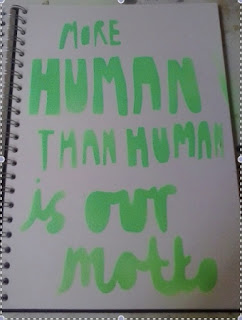 MORE
HUMAN
THAN HUMAN
is our
motto